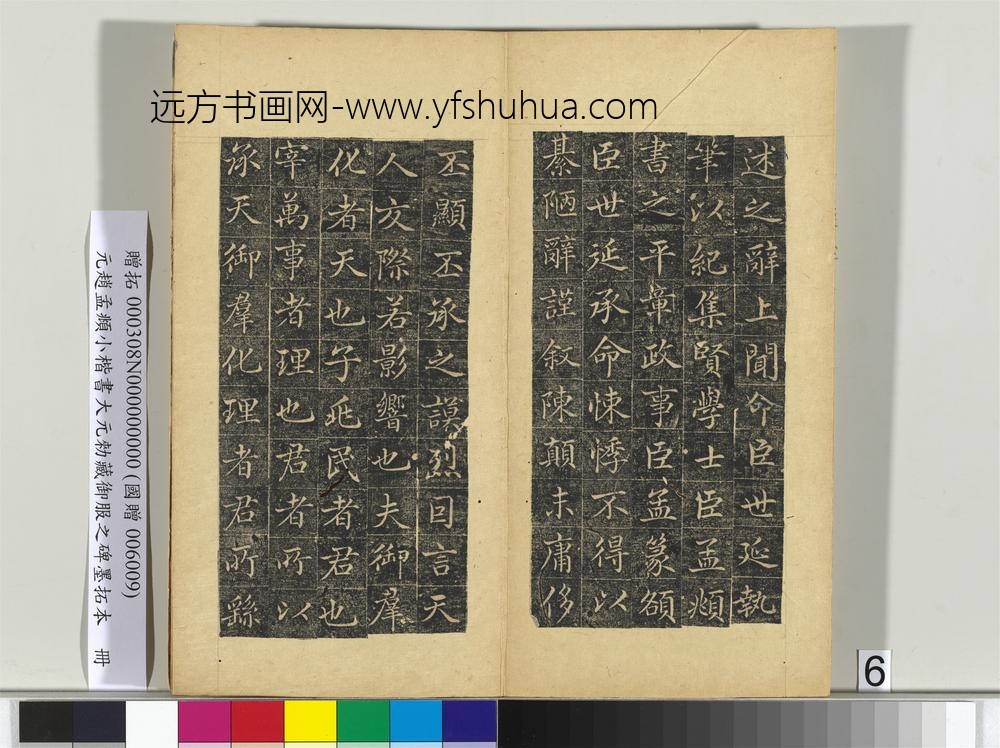 远方书画网-www.yfshuhua.com
述之辭上聞命臣世延執
筆以紀集賢學士臣孟頫
書之平章政事臣孟篆額
臣世延承命悚悸不得以
綦陋辭謹叙陳顛末庸侈
丕顯丕承之謨烈因言天
人交際若影響也夫御羣
化者天也子兆民者君也
宰萬事者理也君者所以
承天御羣化理者君所繇
贈拓 000308N000000000 (國贈 006009)
元趙孟頫小楷書大元勑藏御服之碑墨拓本 冊
6